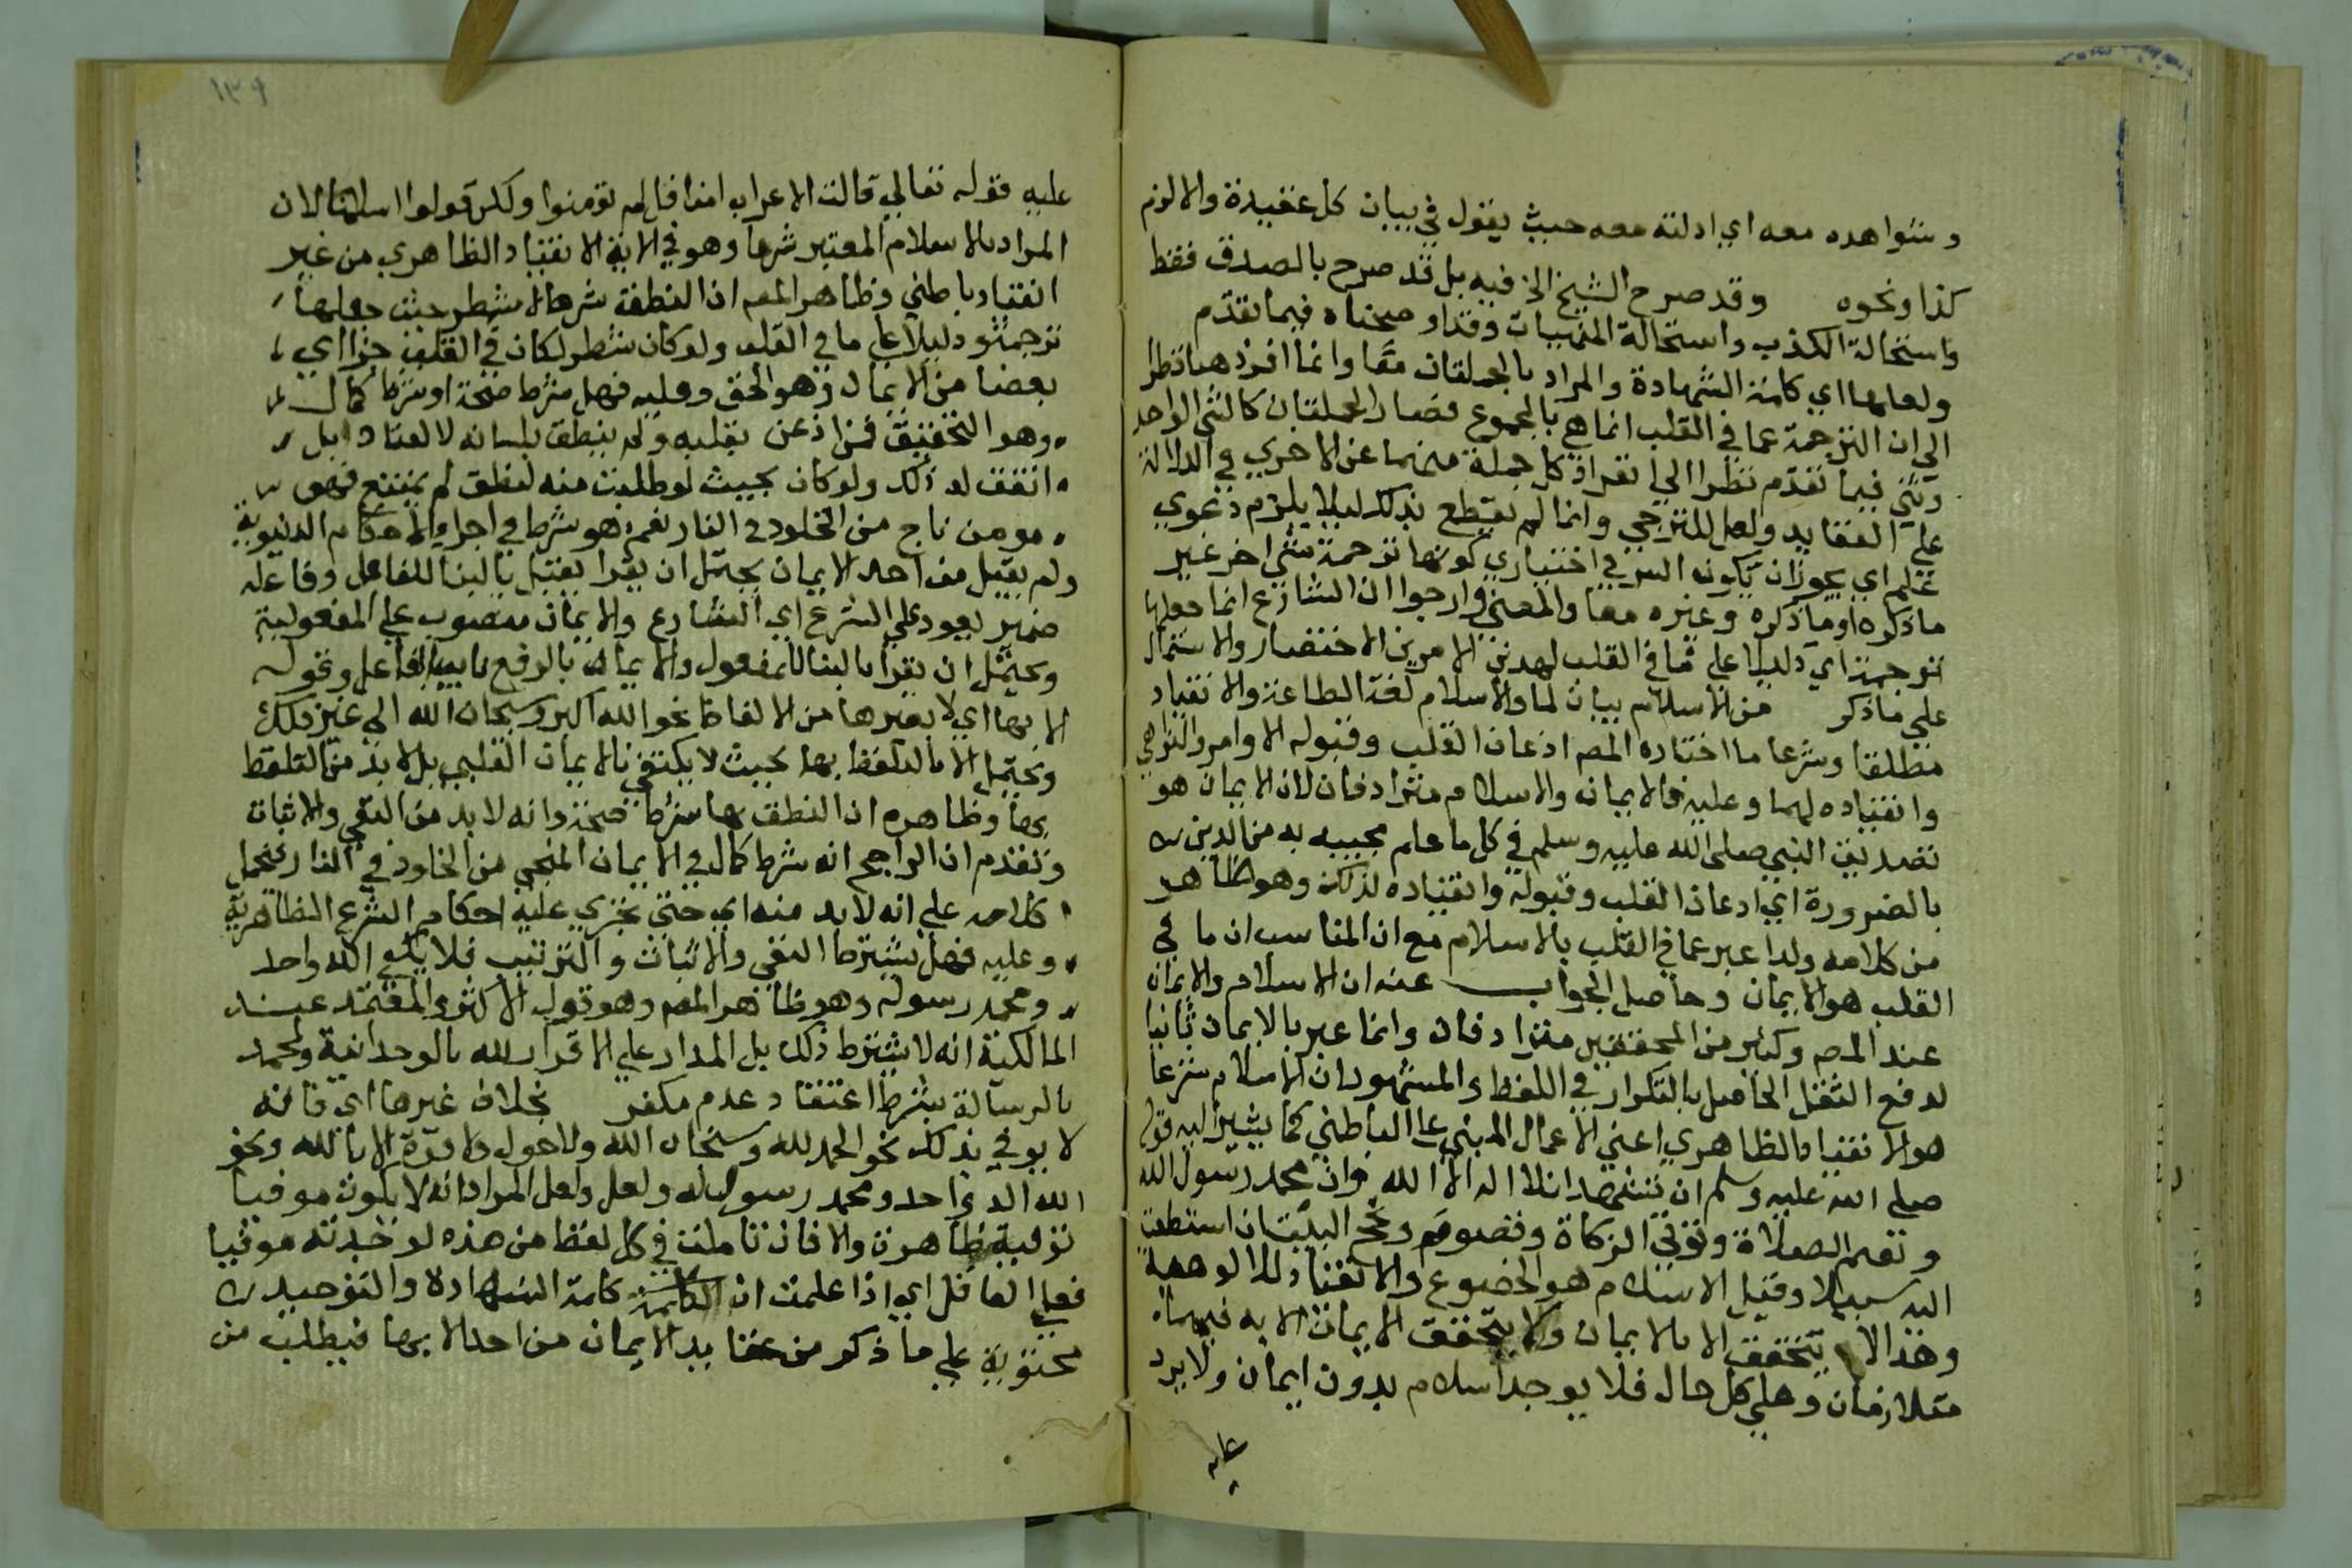 وشواهده معه اي ادلته معه حيث يقول في بيان كل عقيدة والا لزم
كذا ونحوه وقد صرح الشيخ الخ فيه بل قد صرح بالصدق فقط
واستحالة الكذب واستحالة المنهيات وقد اوضحناه فيما تقدم
ولعلها اي كلمة الشهادة والمراد بالجملتان معا وانما افرد هنا نظرا
الي ان الترجمة عما في القلب انما هي بالمجموع فصار الجملتان كالشي الواحد
وثني فيما تقدم نظرا الي انفراد كل جملة منهما عن الاخري في الدلالة
علي العقايد ولعل للترجي وانما لم يقطع بذلك ليلا يلزم دعوي
علم اي يجوز ان يكون السر في اختياري كونها ترجمة شي اخر غير
ما ذكره او ما ذكره وغيره معا والمعني وارجوا ان الشارع انما جعلها
ترجمة اي دليلا علي ما في القلب لهدين الامرين الاختصار والاشتمال
علي ما ذكر من الاسلام بيان لما والاسلام لغة الطاعة والانقياد
مطلقا وشرعا ما اختاره المص اذعان القلب وقبوله الاوامر والنواهي
وانقياده لهما وعليه فالايمان والاسلام مترادفان لان الايمان هو
تصديق النبي صلى الله عليه وسلم في كل ما علم مجييه به من الدين
بالضرورة اي ادعان القلب وقبوله وانقياده لذلك وهو ظاهر
من كلامه ولدا عبر عما في القلب بالاسلام مع ان المناسب ان ما في
القلب هو الايمان وحاصل الجواب عنه ان الاسلام والايمان
عند المص وكثير من المحققين مترادفان وانما عبر بالايمان ثانيا
لدفع الثقل الحاصل بالتكرار في اللفظ والمشهور ان الاسلام شرعا
هو الانقياد الظاهري اعني الاعمال المبني على الباطني كما يشير اليه قوله
صلى الله عليه وسلم ان تشهد ان لا اله الا الله وان محمد رسول الله
وتقيم الصلاة وتوتي الزكاة وتصوم وتحج البيت ان استطعت
اليه سبيلا وقيل الاسلام هو الخضوع والانقياد للالوهية
وهذا لا يتحقق الا بالايمان ولا يتحقق الايمان الا به فهما
متلازمان وعلي كل حال فلا يوجد اسلام بدون ايمان ولا يرد
عليه
١٣٩
عليه قوله تعالي قالت الاعراب امنا قل لم تومنوا ولكن قولوا اسلمنا لان
المراد بالاسلام المعتبر شرعا وهو في الاية الانقياد الظاهري من غير
انقياد باطني وظاهر المص ان النطق شرط لا شطر حيث جعلها
ترجمة ودليلا علي ما في القلب ولو كان شطر لكان في القلب جزا اي
بعضا من الايمان وهو الحق وعليه فهل شرط صحة او شرط كمال
وهو التحقيق فمن اذعن بقلبه ولم ينطق بلسانه لا لعناد بل
اتفق له ذلك ولو كان بحيث لو طلبت منه لنطق لم يمتنع فهو
مومن ناج من الخلود في النار نعم هو شرط في اجراء الاحكام الدنيوية
ولم يقبل من احد الايمان يحتمل ان يقرا يقبل بالبنا للفاعل وفاعله
ضمير يعود علي الشرع اي الشارع والايمان منصوب علي المفعولية
ويحتمل ان يقرا بالبنا للمفعول والايمان بالرفع نايب الفاعل وقوله
الا بها اي لا بغيرها من الالفاظ نحو الله اكبر وسبحان الله الي غير ذلك
ويحتمل الا بالتلفظ بها بحيث لا يكتفي بالايمان القلبي بل لابد من التلفظ
بها وظاهره ان النطق بها شرط صحة وانه لا بد من النفي والاثبات
وتقدم ان الراجح انه شرط كمال في الايمان المنجي من الخلود في النار فيحمل
كلامه علي انه لا بد منه اي حتي تجري عليه احكام الشرع الظاهرية
وعليه فهل يشترط النفي والاثبات والترتيب فلا يكفي الله واحد
ومحمد رسوله وهو ظاهر المص وهو قول الاكثر والمعتمد عند
المالكية انه لا يشترط ذلك بل المدار علي الاقرار لله بالوحدانية ولمحمد
بالرسالة بشرط اعتقاد عدم مكفر بخلاف غيرها اي فانه
لا يوفي بذلك نحو الحمد لله وسبحان الله ولا حول ولا قوة الا بالله ونحو
الله الد واحد ومحمد رسول الله ولعل ولعل المراد انه لا يكون موفيا
توفية ظاهرة والا فان تاملت في كل لفظ من هذه لوجدته موفيا
فعلي العاقل اي اذا علمت ان الكلمة كلمة الشهادة والتوحيد
محتوية علي ما ذكر من عقايد الايمان من احد الا بها فيطلب من